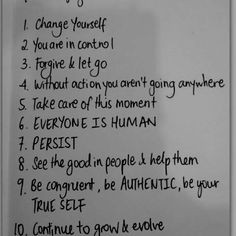 1. Change Yourself
2 You are in control
3. Forgive & let go
4. Without action you aren't going anywhere
5. Take care of this moment
6. EVERYONE IS HUMAN
7. PERSIST
8. See the good in people & help them
9. Be congruent, be AUTHENTIC, be your
TRUE SELF
10. Continue to grow & evolve